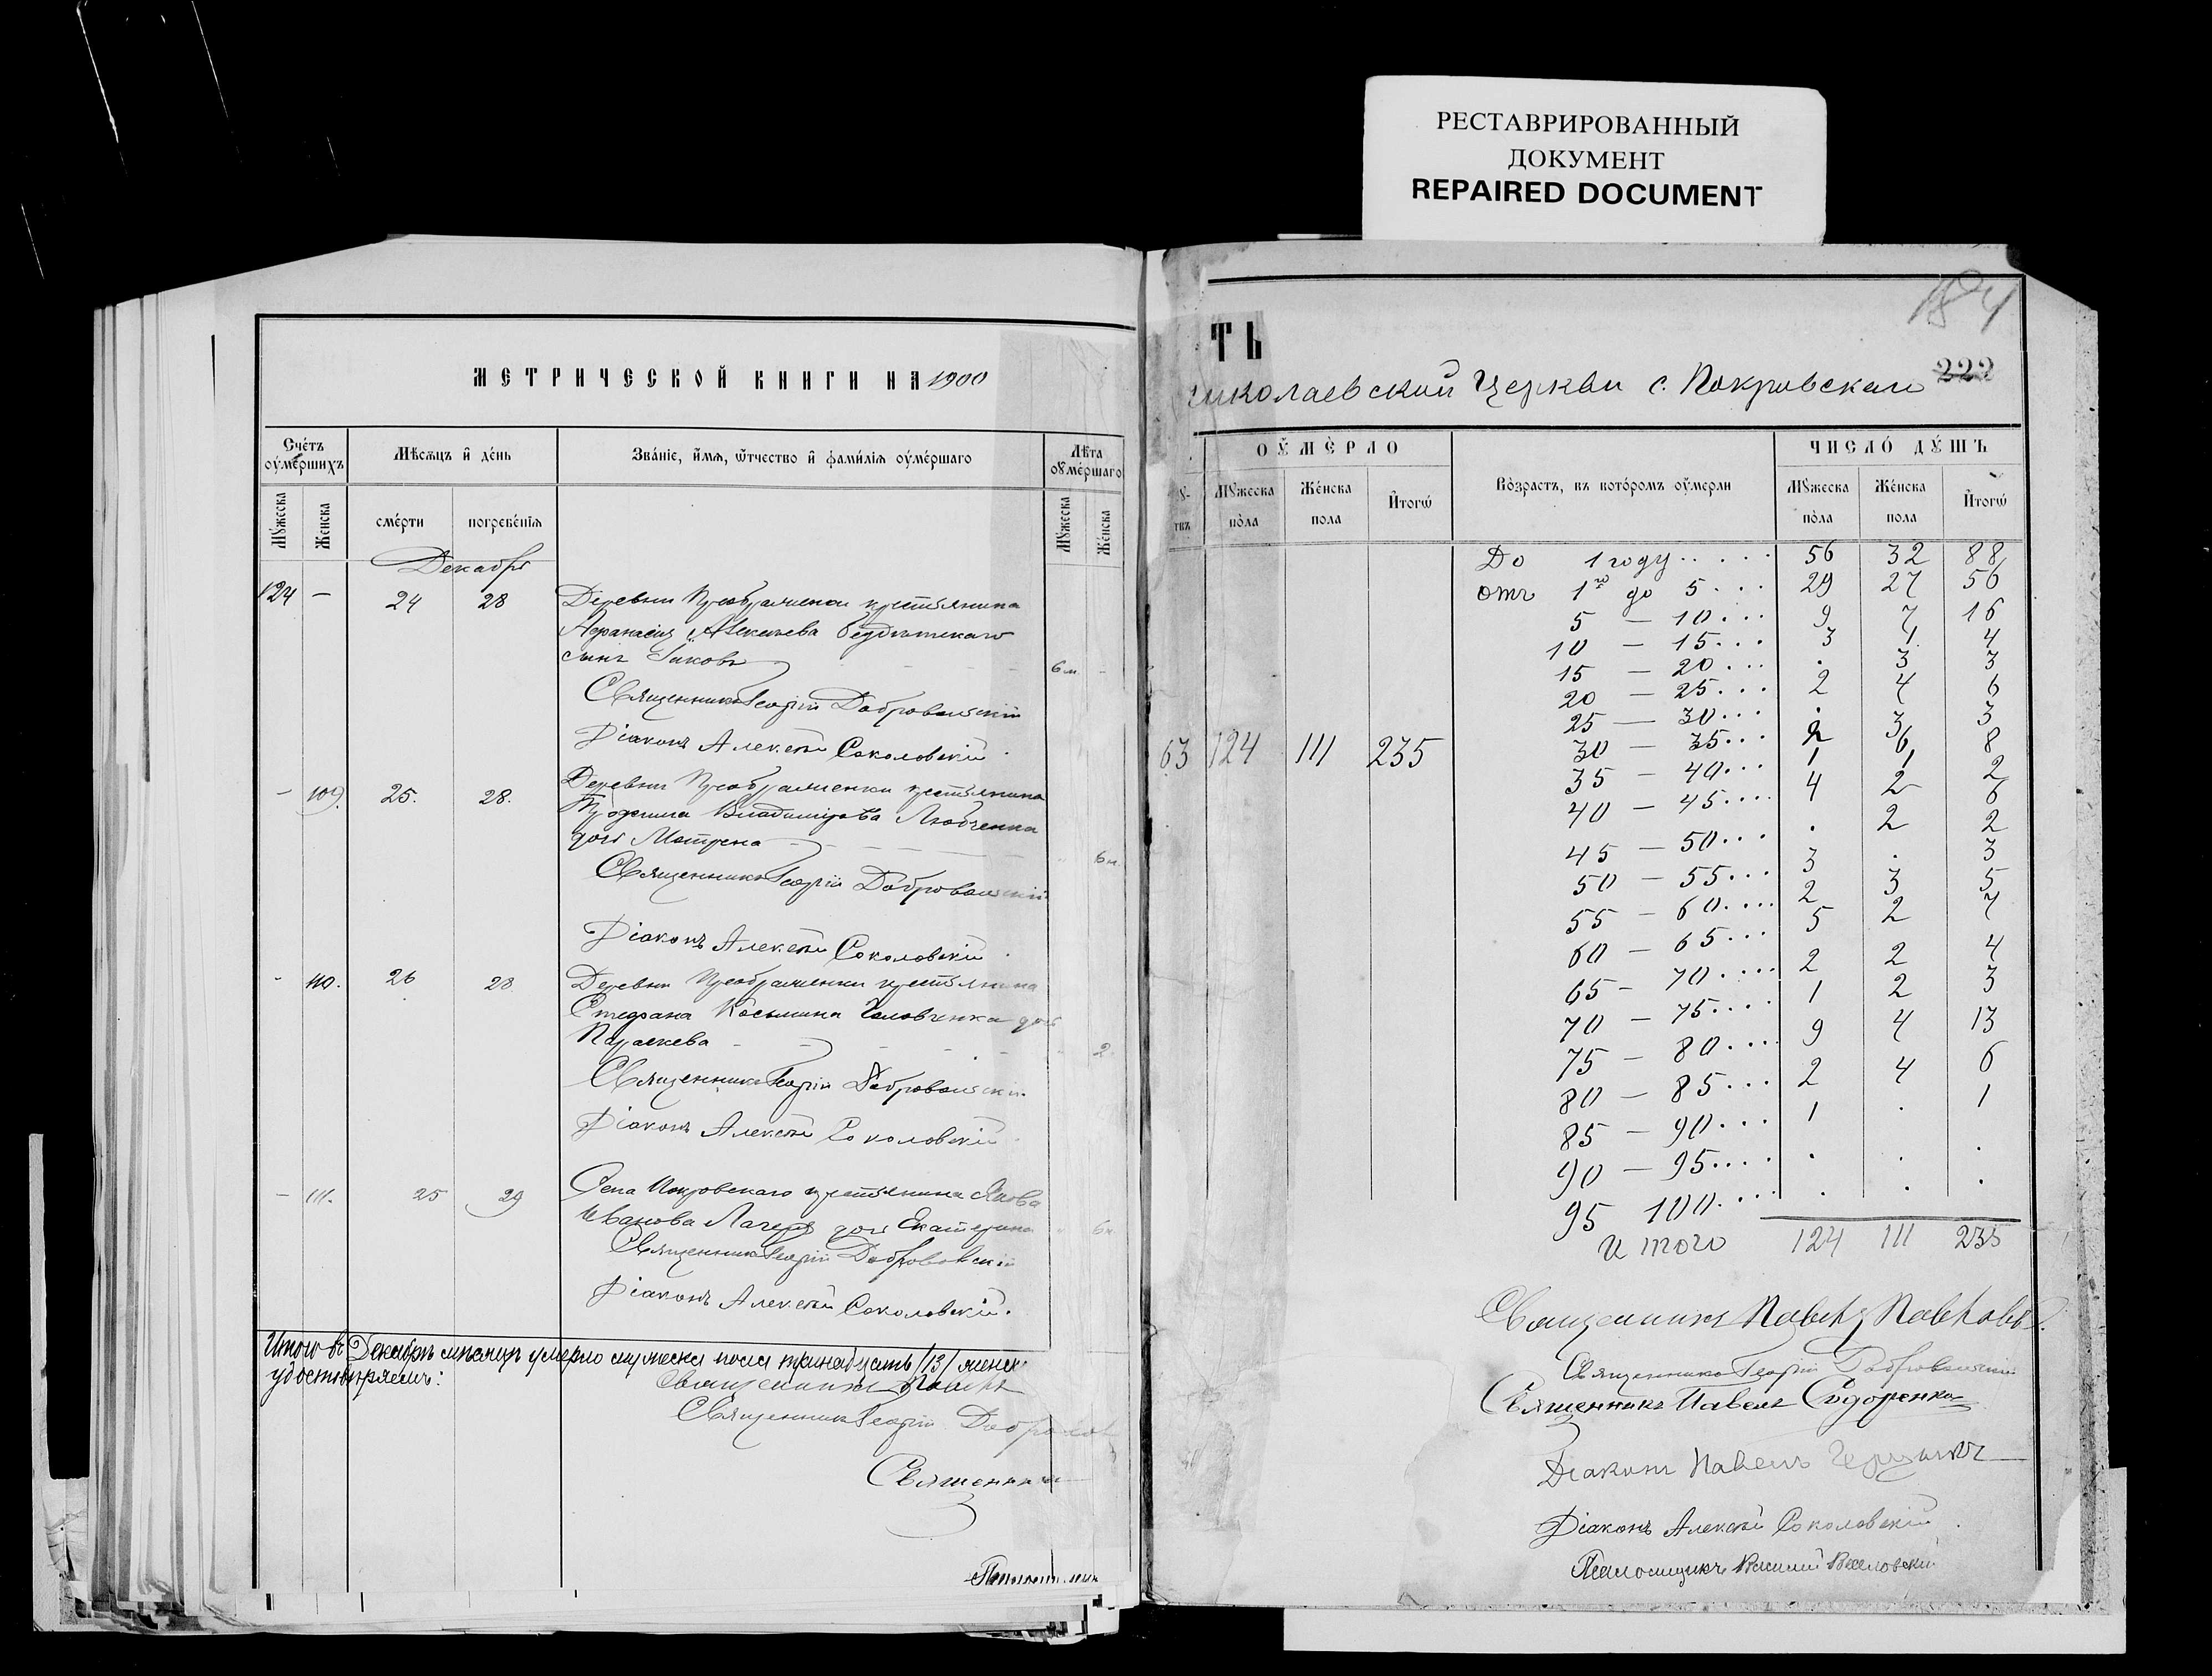 РЕСТАВРИРОВАННЫЙ
ДОКУМЕНТ
REPAIRED DOCUMENT
МЕТРИЧЕСКОЙ КНИГИ НА 1900
Счетъ оумершихъ
Мѣсяцъ и день
Званіе, имя, отчество и фамилія оумершаго
Лѣта оумершаго
Мужеска
Женска
смерти
погребенія
Мужеска
Женска
Декабрь
124 — 24 28 Деревни Преображенки крестьянина
Афанасія Алексѣева
сынъ Іаковъ 6 м. -
Священникъ Георгій Добровольскій
Діаконъ Алексѣй Соколовскій.
— 109. 25. 28. Деревни Преображенки крестьянина
Трофима Владимірова Любченка
дочь Матрона 6 м.
Священникъ Георгій Добровольскій
Діаконъ Алексѣй Соколовскій.
- 110. 26 28 Деревни Преображенки крестьянина
Стефана Косьмина Головченка дочь
Параскева 2.
Священникъ Георгій Добровольскій
Діаконъ Алексѣй Соколовскій
— 111. 25 29 Села Покровскаго крестьянина Якова
Иванова дочь Екатерина 6 м.
Священникъ Георгій Добровольскій
Діаконъ Алексѣй Соколовскій.
Итого въ Декабрѣ мѣсяцѣ умерло мужеска пола тринадцать /13/ женск
удостовѣряемъ:
Священникъ Павелъ
Священникъ Георгій Добровол
Священникъ
184
ТЬ
222
николаевской Церкви с. Покровскаго
ОУМЕРЛО
Возрастъ, въ которомъ оумерли
ЧИСЛО ДУШЪ
Мужеска пола
Женска пола
Итого
Мужеска пола
Женска пола
Итого
До 1 году..... 56 32 88
отъ 1го до 5.... 29 27 56
5 — 10... 9 7 16
10 — 15... 3 1 4
15 — 20... . 3 3
20 — 25... 2 4 6
25 — 30... . 3 3
63 124 111 235
30 — 35... 2 6 8
35 — 40... 1 1 2
40 — 45.... 4 2 6
45 — 50... . 2 2
50 — 55... 3 . 3
55 — 60.... 2 3 5
60 — 65... 5 2 7
65 — 70.... 2 2 4
70 — 75.... 1 2 3
75 — 80.... 9 4 13
80 — 85... 2 4 6
85 — 90... 1 . 1
90 — 95.... . . .
95 100.... . . .
Итого 124 111 235
Священникъ Павелъ Павловъ.
Священникъ Георгій Добровольскій
Священникъ Павелъ Сидоренко
Діаконъ Павелъ
Діаконъ Алексѣй Соколовскій.
Псаломщикъ Василій Веселовскій